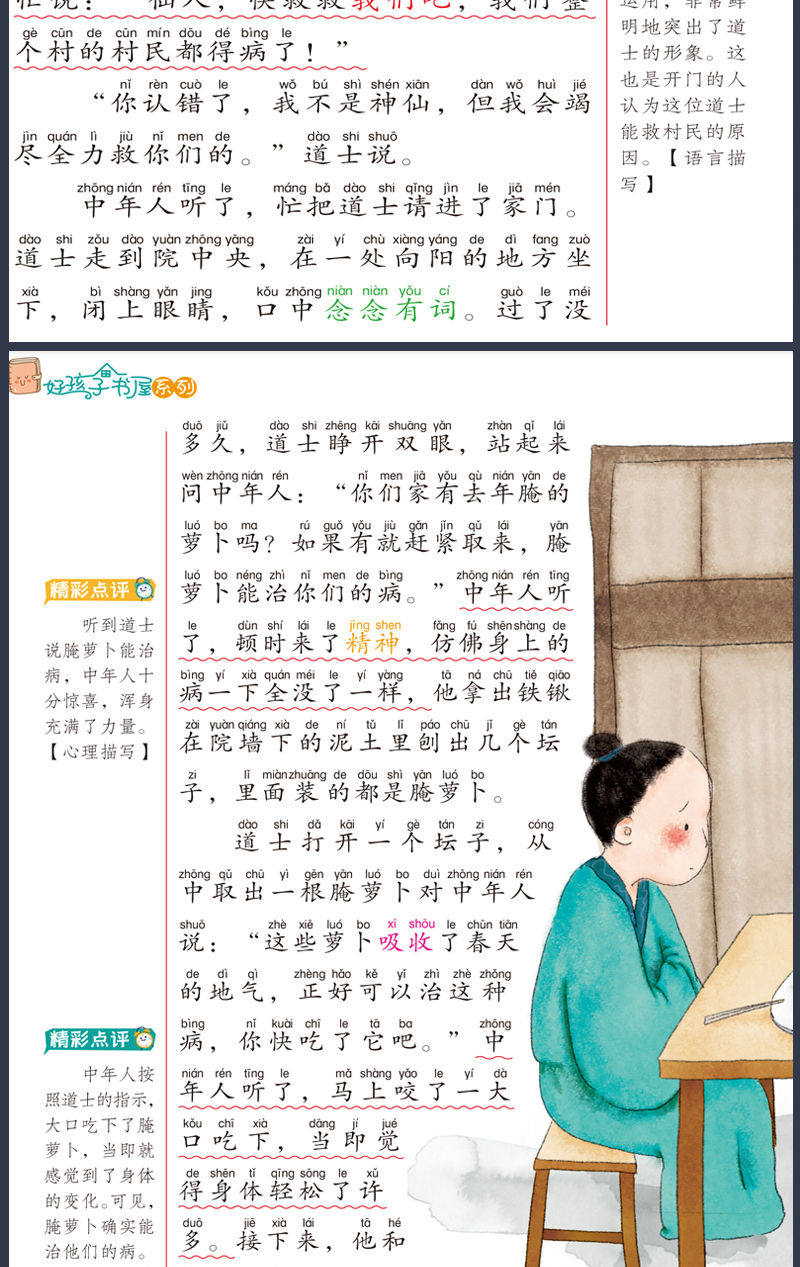 忙说：“仙人，快救救我们吧，我们整
gè cūn de cūn mín dōu dé bìng le
个村的村民都得病了！”
nǐ rèn cuò le wǒ bú shì shén xiān dàn wǒ huì jié
“你认错了，我不是神仙，但我会竭
jìn quán lì jiù nǐ men de dào shi shuō
尽全力救你们的。”道士说。
zhōng nián rén tīng le máng bǎ dào shi qǐng jìn le jiā mén
中年人听了，忙把道士请进了家门。
dào shi zǒu dào yuàn zhōng yāng zài yí chù xiàng yáng de dì fang zuò
道士走到院中央，在一处向阳的地方坐
xià bì shàng yǎn jing kǒu zhōng niàn niàn yǒu cí guò le méi
下，闭上眼睛，口中念念有词。过了没
运用，非常鲜
明地突出了道
士的形象。这
也是开门的人
认为这位道士
能救村民的原
因。【语言描
写】
好孩子书屋系列
duō jiǔ dào shi zhēng kāi shuāng yǎn zhàn qǐ lái
多久，道士睁开双眼，站起来
wèn zhōng nián rén nǐ men jiā yǒu qù nián yān de
问中年人：“你们家有去年腌的
luó bo ma rú guǒ yǒu jiù gǎn jǐn qǔ lái yān
萝卜吗？如果有就赶紧取来，腌
luó bo néng zhì nǐ men de bìng zhōng nián rén tīng
萝卜能治你们的病。”中年人听
le dùn shí lái le jīng shen fǎng fú shēn shàng de
了，顿时来了精神，仿佛身上的
bìng yí xià quán méi le yí yàng tā ná chū tiě qiāo
病一下全没了一样，他拿出铁锹
zài yuàn qiáng xià de ní tǔ lǐ páo chū jǐ gè tán
在院墙下的泥土里刨出几个坛
zi lǐ miàn zhuāng de dōu shì yān luó bo
子，里面装的都是腌萝卜。
dào shi dǎ kāi yí gè tán zi cóng
道士打开一个坛子，从
zhōng qǔ chū yì gēn yān luó bo duì zhōng nián rén
中取出一根腌萝卜对中年人
shuō zhè xiē luó bo xī shōu le chūn tiān
说：“这些萝卜吸收了春天
de dì qì zhèng hǎo kě yǐ zhì zhè zhǒng
的地气，正好可以治这种
bìng nǐ kuài chī le tā ba zhōng
病，你快吃了它吧。”中
nián rén tīng le mǎ shàng yǎo le yí dà
年人听了，马上咬了一大
kǒu chī xià dāng jí jué
口吃下，当即觉
de shēn tǐ qīng sōng le xǔ
得身体轻松了许
duō jiē xià lái tā hé
多。接下来，他和
精彩点评
听到道士
说腌萝卜能治
病，中年人十
分惊喜，浑身
充满了力量。
【心理描写】
精彩点评
中年人按
照道士的指示，
大口吃下了腌
萝卜，当即就
感觉到了身体
的变化。可见，
腌萝卜确实能
治他们的病。